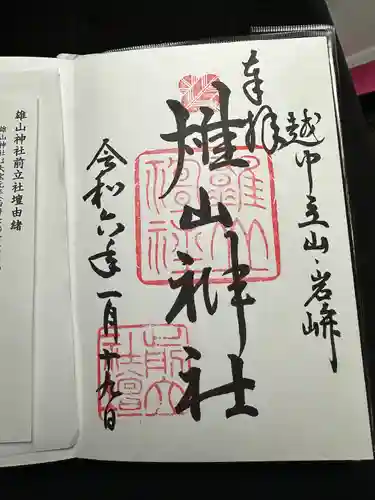 奉拝
越中立山・岩峅
雄山神社
令和六年一月十九日
雄山神社
前立社壇
雄山神社前立社壇由緒